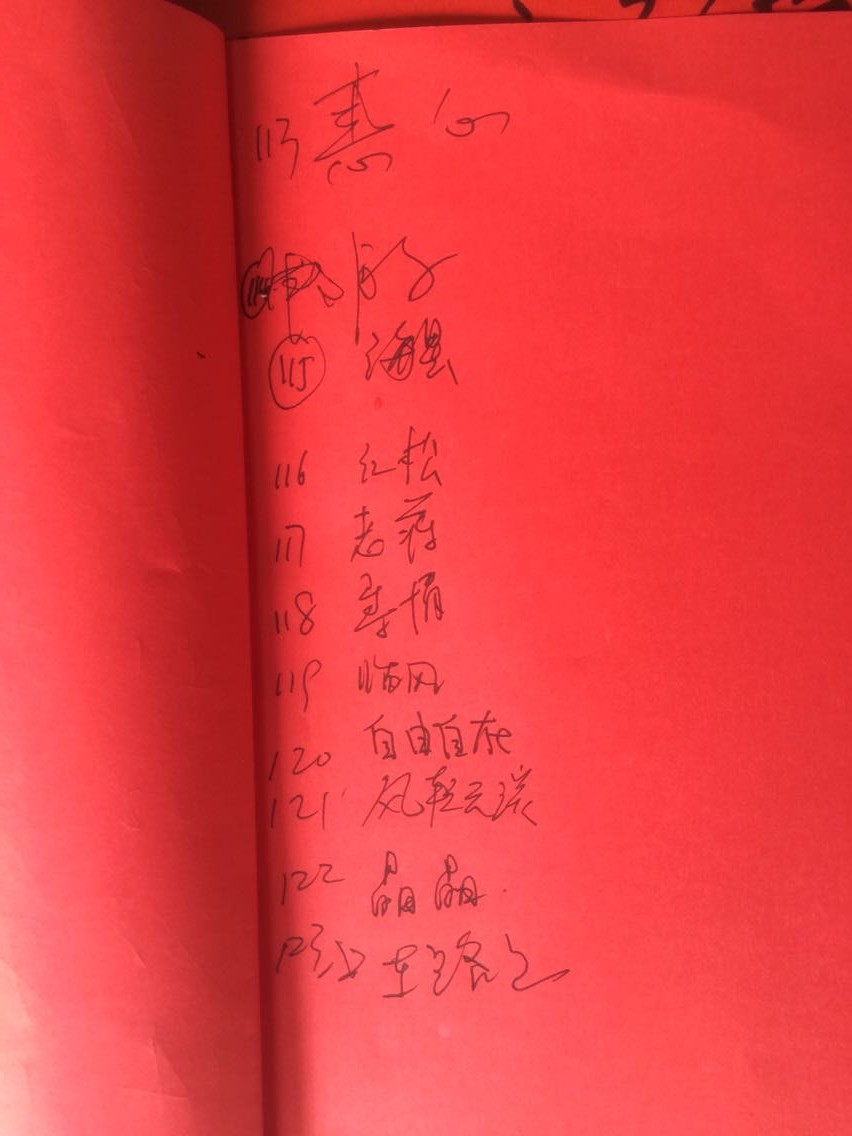 113 惠心
114
115 海昱
116 红松
117 老蒋
118 寿娟
119 临风
120 自由自在
121 风轻云淡
122 晶晶
123 在路上